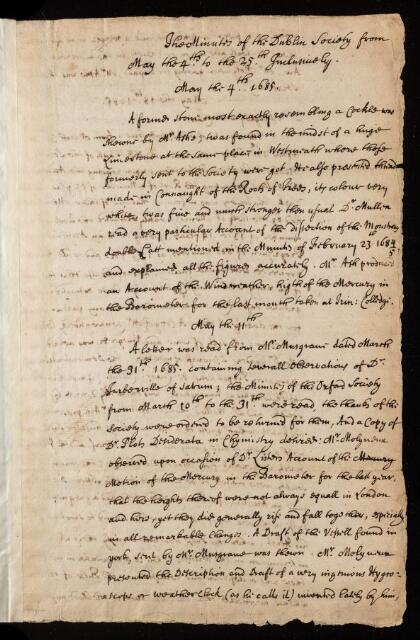 The Minutes of the Dublin Society from
May the 4th to the 25th Inclusively.
May the 4th. 1685.
A former stone most exactly resembling a Cockle was
shown by Mr. Ashe, twas found in the midst of a huge
Limestone at the same place in Westmeath where those
formerly sent to the Society were got. He also presented thread
made in Connaught of the Roots of Trees, its colour very
white, twas fine and much stronger then usual. Dr. Mullen
read a very particular Account of the dissection of the Monstrous
double Catt mentioned in the Minutes of February 23 1684/5
and explained all the figures accurately. Mr. Ash produced
an Account of the Wind weather & hight of the Mercury in
the Barometer for the last month taken at Trin: Colledge.
May the 11th
A letter was read from Mr. Musgrave dated March
the 31th 1685. containing severall Observations of Dr.
Turberville of Sarum; the Minutes of the Oxford Society
from March 10th to the 31th were read, the thanks of the
Society were ordered to be returned for them, And a Copy of
Dr. Plots Desiderata in Chymistry desired. Mr. Molyneux
observed upon occasion of Dr. Listers Account of the Mercury
Motion of the Mercury in the Barometer for the last year,
that the heights thereof were not always equall in London
and here, yet they did generally rise and fall together, especially
in all remarkable Changes. A Draft of the Vessell found in
york, sent by Mr. Musgrave was shewn. Mr. Molyneux
presented the Description and Draft of a very ingenious Hygro-
scope or weather Clock (as he calls it) invented lately by him,